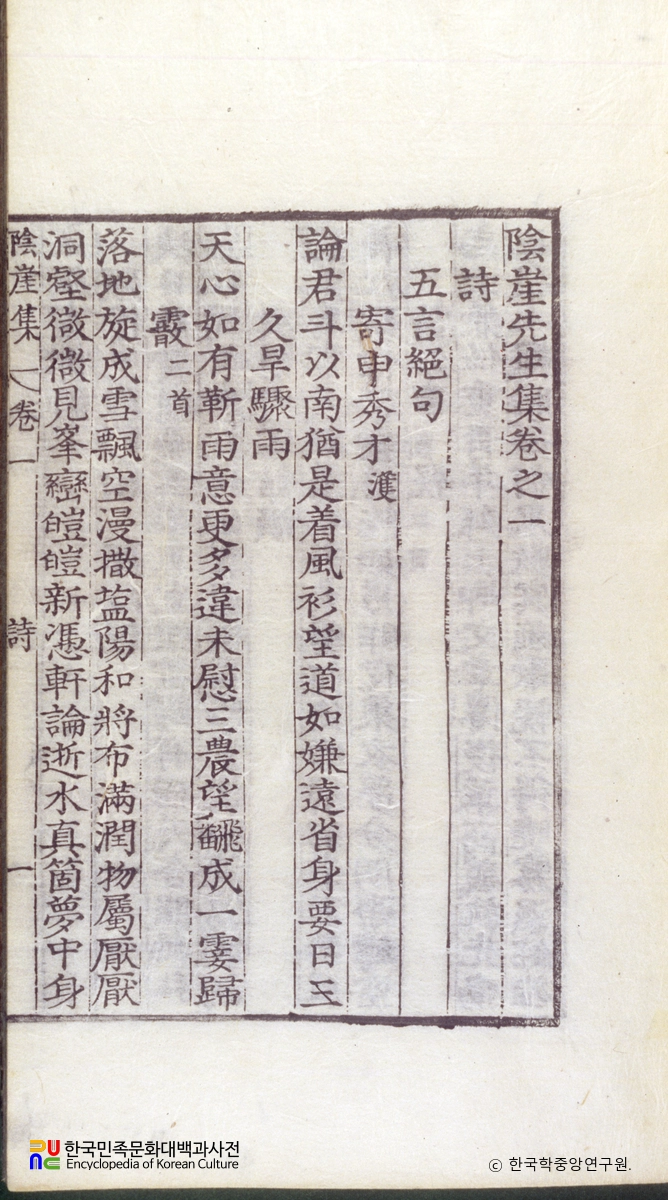 陰崖先生集卷之一
詩
五言絕句
寄申秀才 濩
論君斗以南猶是着風衫望道如嫌遠省身要日三
久旱驟雨
天心如有靳雨意更多違未慰三農望飜成一霎歸
霰 二首
落地旋成雪飄空漫撒塩陽和將布滿潤物屬厭厭
洞壑微微見峯巒皚皚新憑軒論逝水真箇夢中身
陰崖集 卷一 詩 一
한국민족문화대백과사전
Encyclopedia of Korean Culture
ⓒ 한국학중앙연구원.